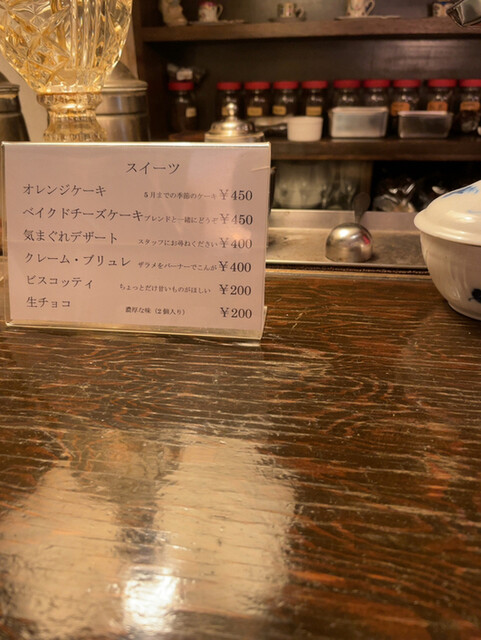 スイーツ
オレンジケーキ 5月までの季節のケーキ ¥450
ベイクドチーズケーキ ブレンドと一緒にどうぞ ¥450
気まぐれデザート スタッフにお尋ねください ¥400
クレーム・ブリュレ ザラメをバーナーでこんが ¥400
ビスコッティ ちょっとだけ甘いものがほしい ¥200
生チョコ 濃厚な味(2個入り) ¥200